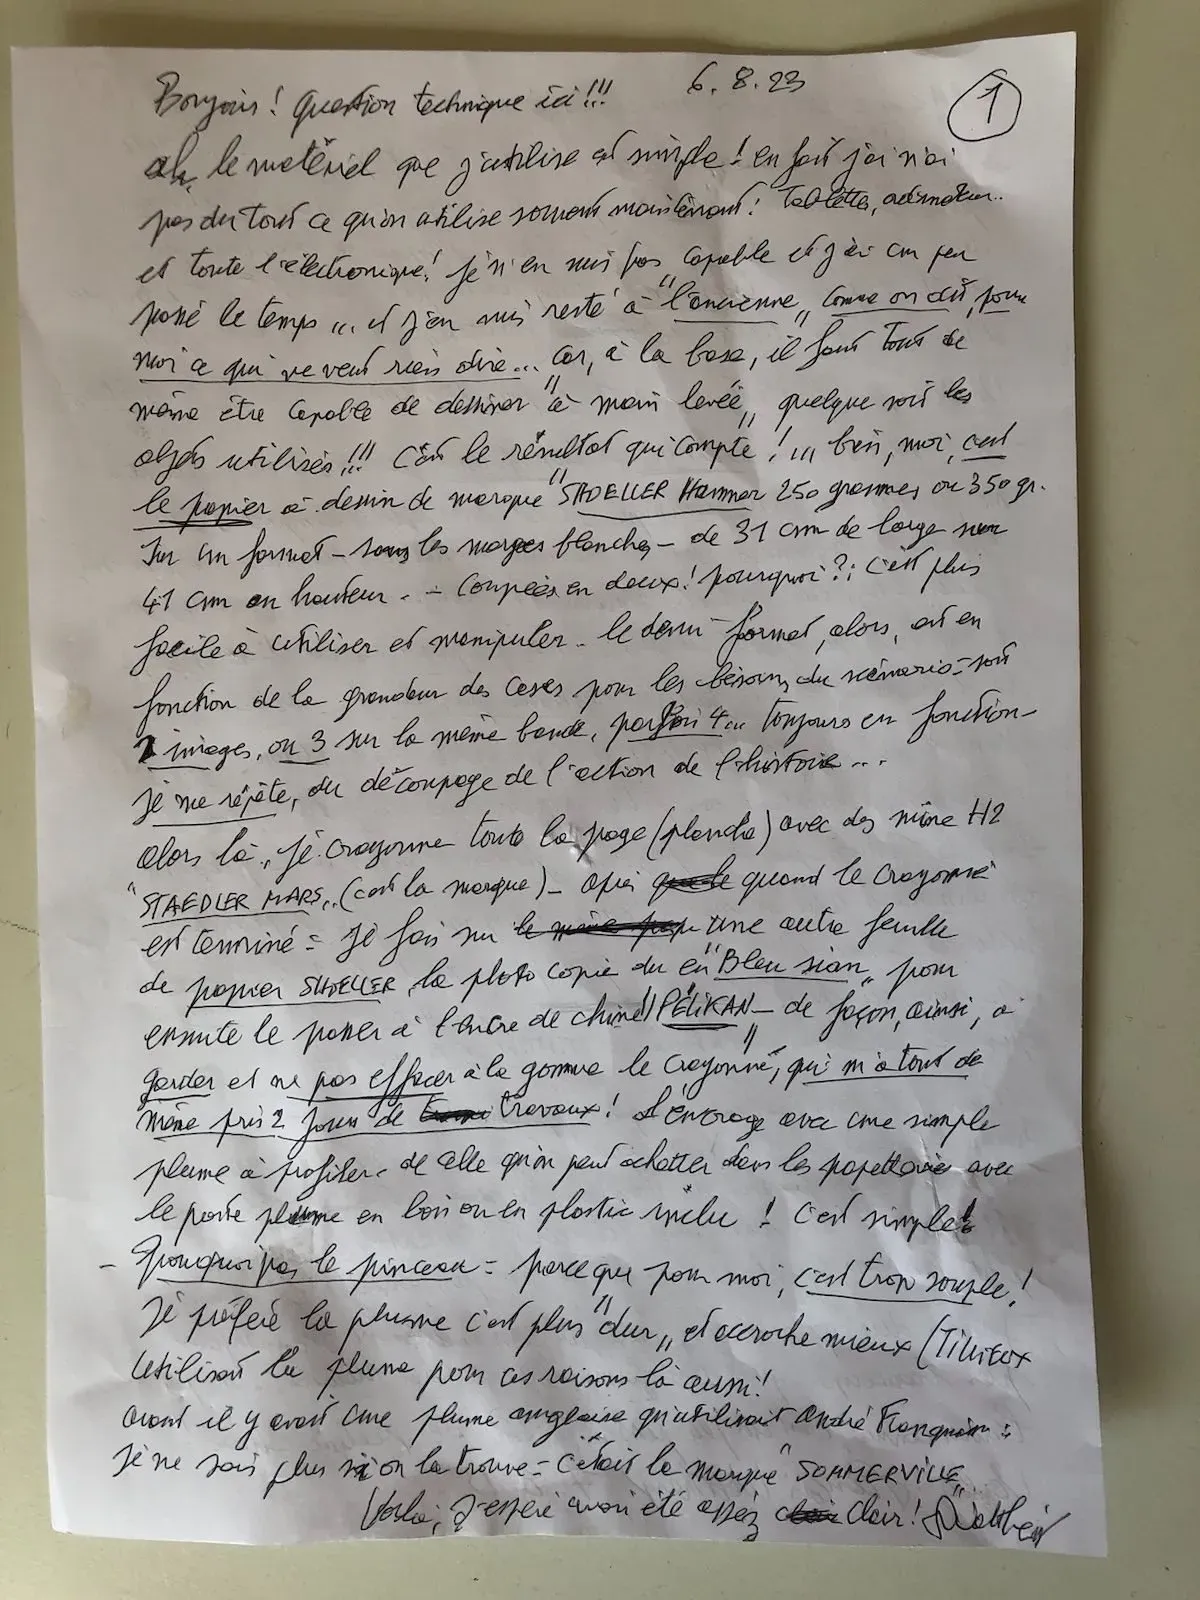 Bonjour ! Question technique ici !!! 6.8.23 1
ah, le matériel que j'utilise est simple ! en fait j'ai n'ai
pas du tout ce qu'on utilise souvent maintenant ! Tablette, ordinateur..
et toute l'électronique ! je n'en suis pas capable et j'ai un peu
passé le temps ... et j'en suis resté à "l'ancienne" comme on dit, pour
moi ce qui ne veut rien dire... car, à la base, il faut tout de
même être capable de dessiner "à main levée" quelque soit les
objets utilisés !!! C'est le résultat qui compte ! ... ben, moi, c'est
le papier à dessin de marque "SHOELLER Hammer 250 grammes ou 350 gr.
Sur un format - sans les marges blanches - de 31 cm de large sur
41 cm en hauteur. - Coupées en deux ! pourquoi ? ; c'est plus
facile à utiliser et manipuler - le demi-format, alors, est en
fonction de la grandeur des cases pour les besoins du scénario = soit
2 images, ou 3 sur la même bande, parfois 4... toujours en fonction -
je me répète, du découpage de l'action de l'histoire...
alors là, je crayonne toute la page (planche) avec des mine H2
"STAEDLER MARS" (c'est la marque) - après quand le crayonné
est terminé = je fais sur le même pap une autre feuille
de papier SHOELLER, la photo copie du en "Bleu sian" pour
ensuite le passer à l'encre de chine "PÉLIKAN" - de façon, ainsi, à
garder et ne pas effacer à la gomme le crayonné, qui m'a tout de
même pris 2 jours de travaux ! L'encrage avec une simple
plume à profiler - de celle qu'on peut acheter dans les papetteries avec
le porte plume en bois ou en plastic inclu ! C'est simple !
- Pourquoi pas le pinceau = parce que pour moi, c'est trop souple !
Je préfère la plume c'est plus "dur" et accroche mieux (Tillieux
utilisait la plume pour ces raisons là aussi !
avant il y avait une plume anglaise qu'utilisait André Franquin :
je ne sais plus si on la trouve = C'était la marque "SOMMERVILLE"
Voilà, j'espère avoir été assez clair !